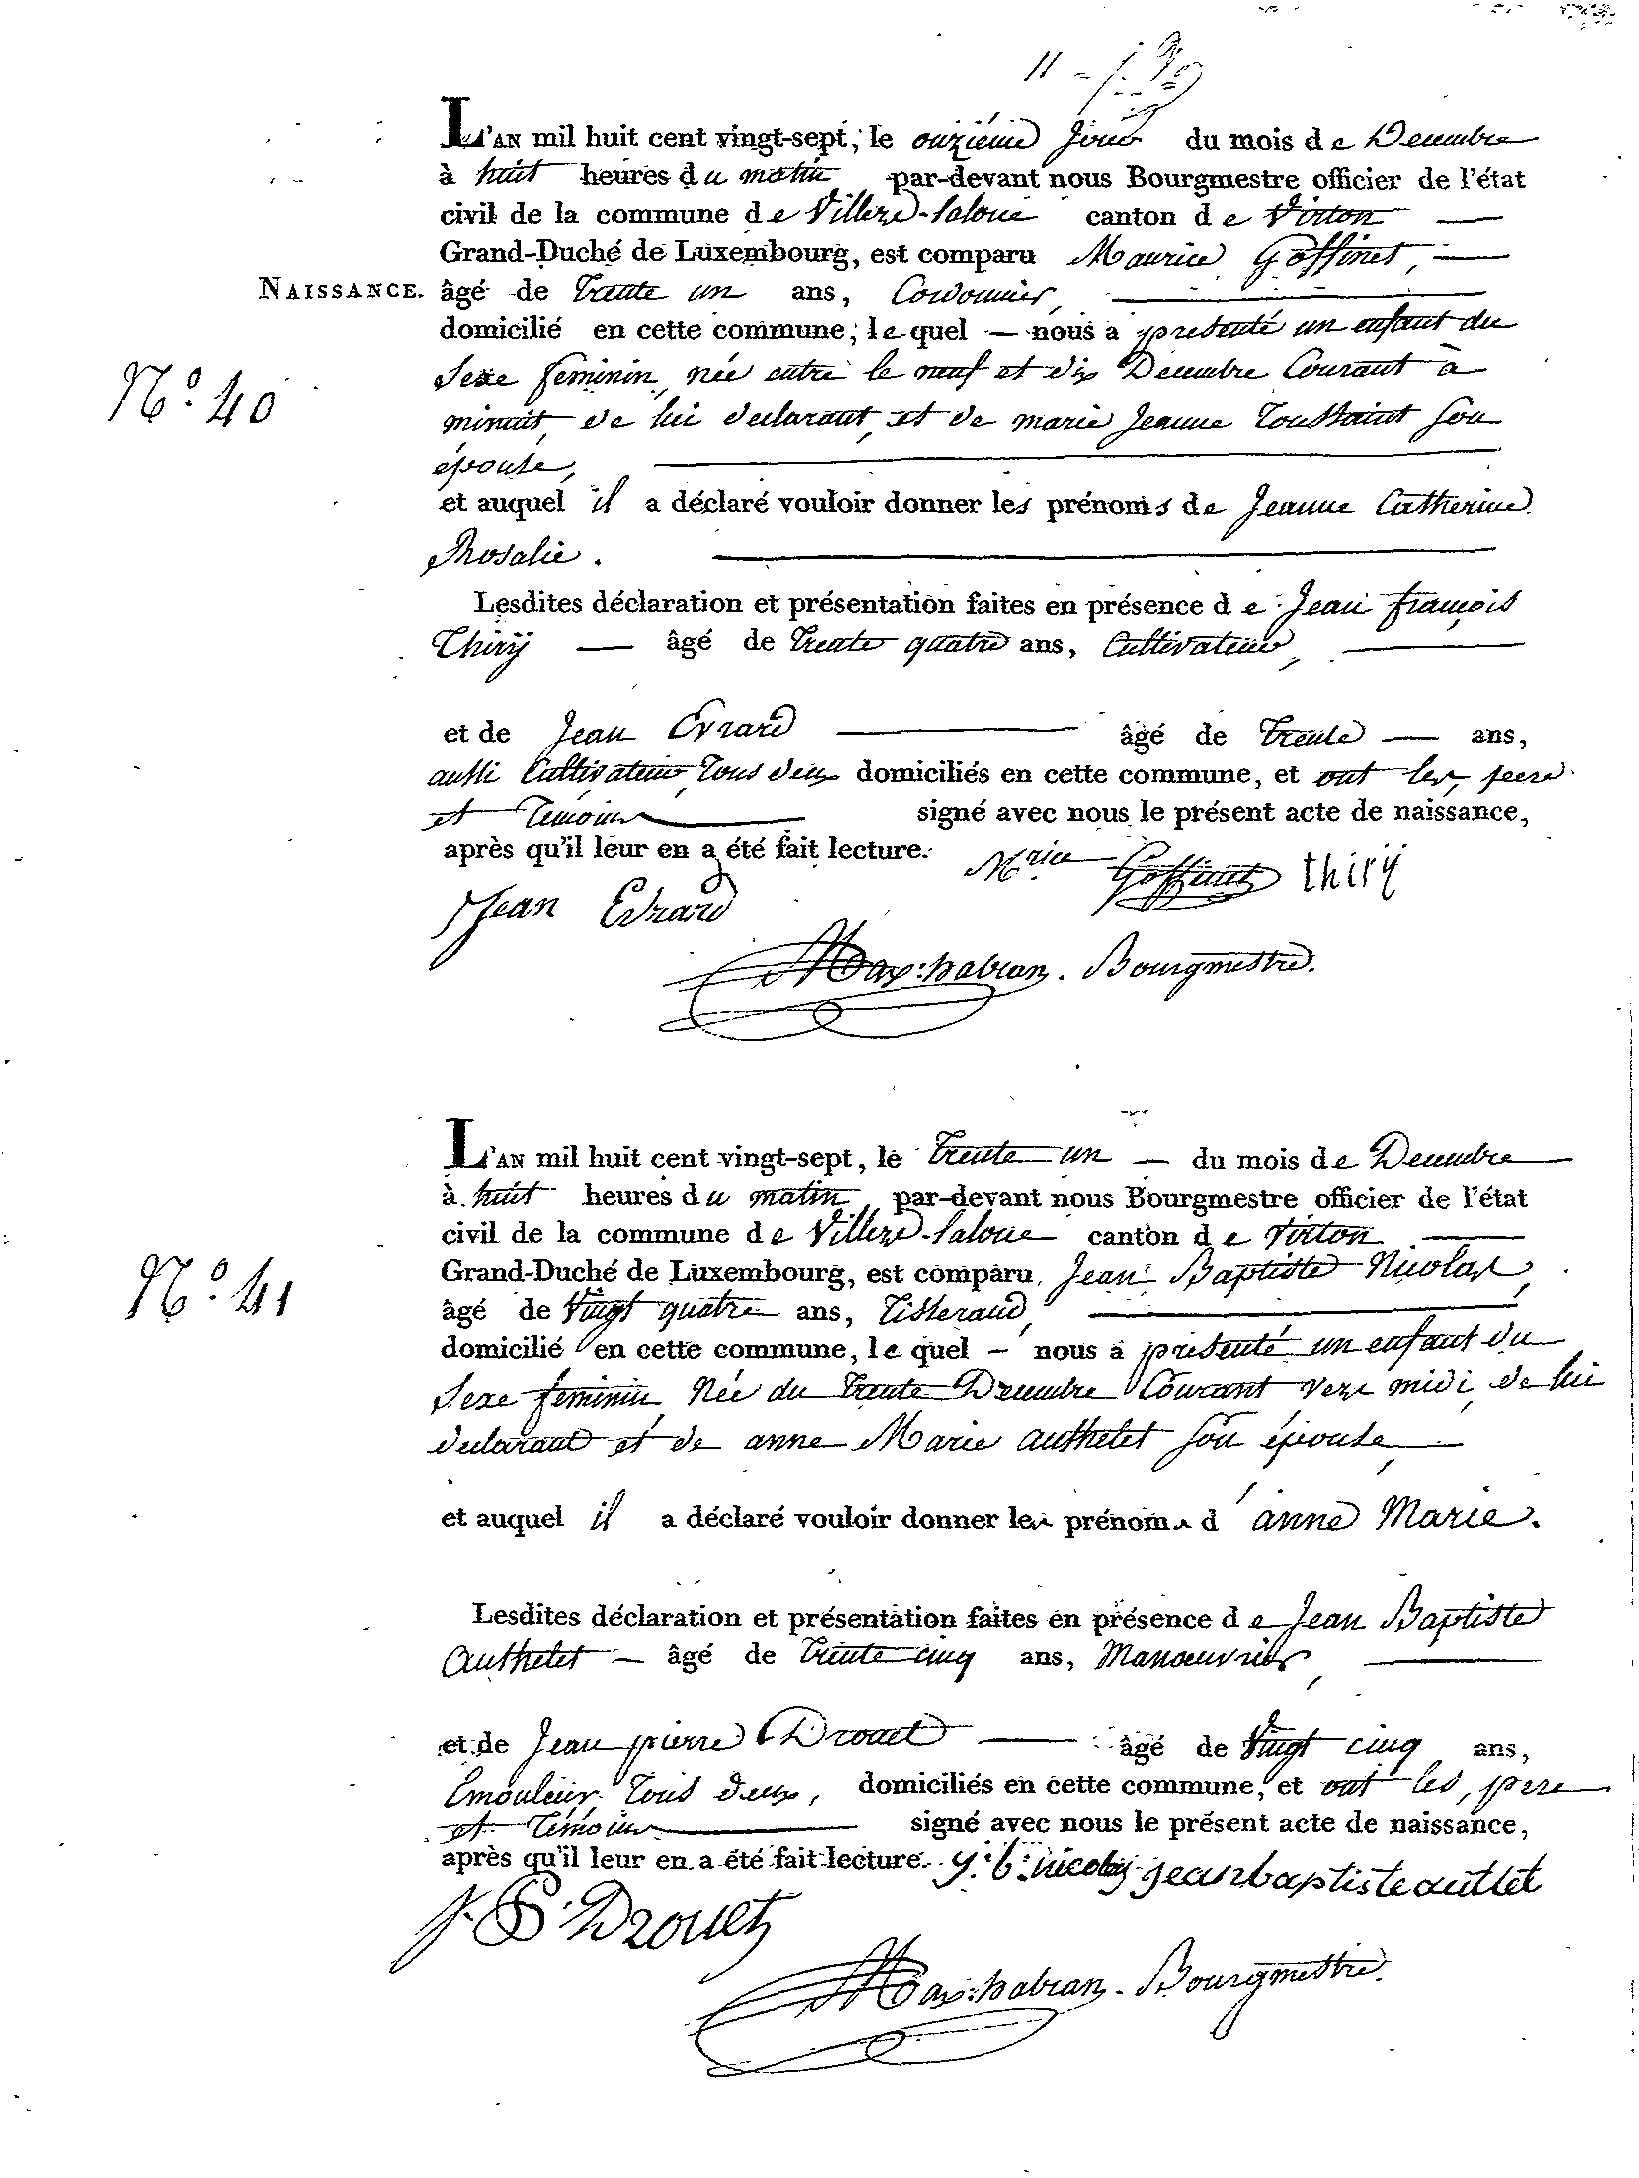 L'AN mil huit cent vingt-sept, le onziéme jour du mois de Decembre
à huit heures du matin, par-devant nous Bourgmestre officier de l'état
civil de la commune de Villers-laloue canton de Virton
Grand-Duché de Luxembourg, est comparu Maurice Goffinet,
NAISSANCE. âgé de Trente un ans, Cordonnier,
domicilié en cette commune, lequel nous a presenté un enfant du
N.o 40
Sexe feminin, née entre le neuf et dix Decembre Courant à
minuit, de lui declarant, et de marie Jeanne Toussaint son
épouse,
et auquel il a déclaré vouloir donner les prénoms de Jeanne Catherine
Rosalie.
Lesdites déclaration et présentation faites en présence de Jean françois
Thirÿ âgé de Trente quatre ans, Cultivateur,
et de Jean Evrard âgé de Trente ans,
aussi Cultivateur, Tous deux domiciliés en cette commune, et ont les, pere
et Témoins signé avec nous le présent acte de naissance,
après qu'il leur en a été fait lecture. Mrice Goffinet thirÿ
Jean Evrard
Max: habran. Bourgmestre.
L'AN mil huit cent vingt-sept, le Trente un du mois de Decembre
à huit heures du matin, par-devant nous Bourgmestre officier de l'état
civil de la commune de Villers-laloue canton de Virton
N.o 41
Grand-Duché de Luxembourg, est comparu Jean Baptiste Nicolas,
âgé de Vingt quatre ans, Tisserand,
domicilié en cette commune, lequel nous a presenté un enfant du
Sexe feminin, Née du Trente Decembre Courant vers midi, de lui
declarant et de anne Marie authelet son épouse,
et auquel il a déclaré vouloir donner les prénoms d'anne Marie.
Lesdites déclaration et présentation faites en présence de Jean Baptiste
Authelet âgé de Trente cinq ans, Manœuvrier,
et de Jean pierre Drouet âgé de Vingt cinq ans,
Emouleur, Tous deux, domiciliés en cette commune, et ont les, pere
et Témoins signé avec nous le présent acte de naissance,
après qu'il leur en a été fait lecture. y: b: nicolas jean baptiste autlet
J. P. Drouet
Max: habran. Bourgmestre.